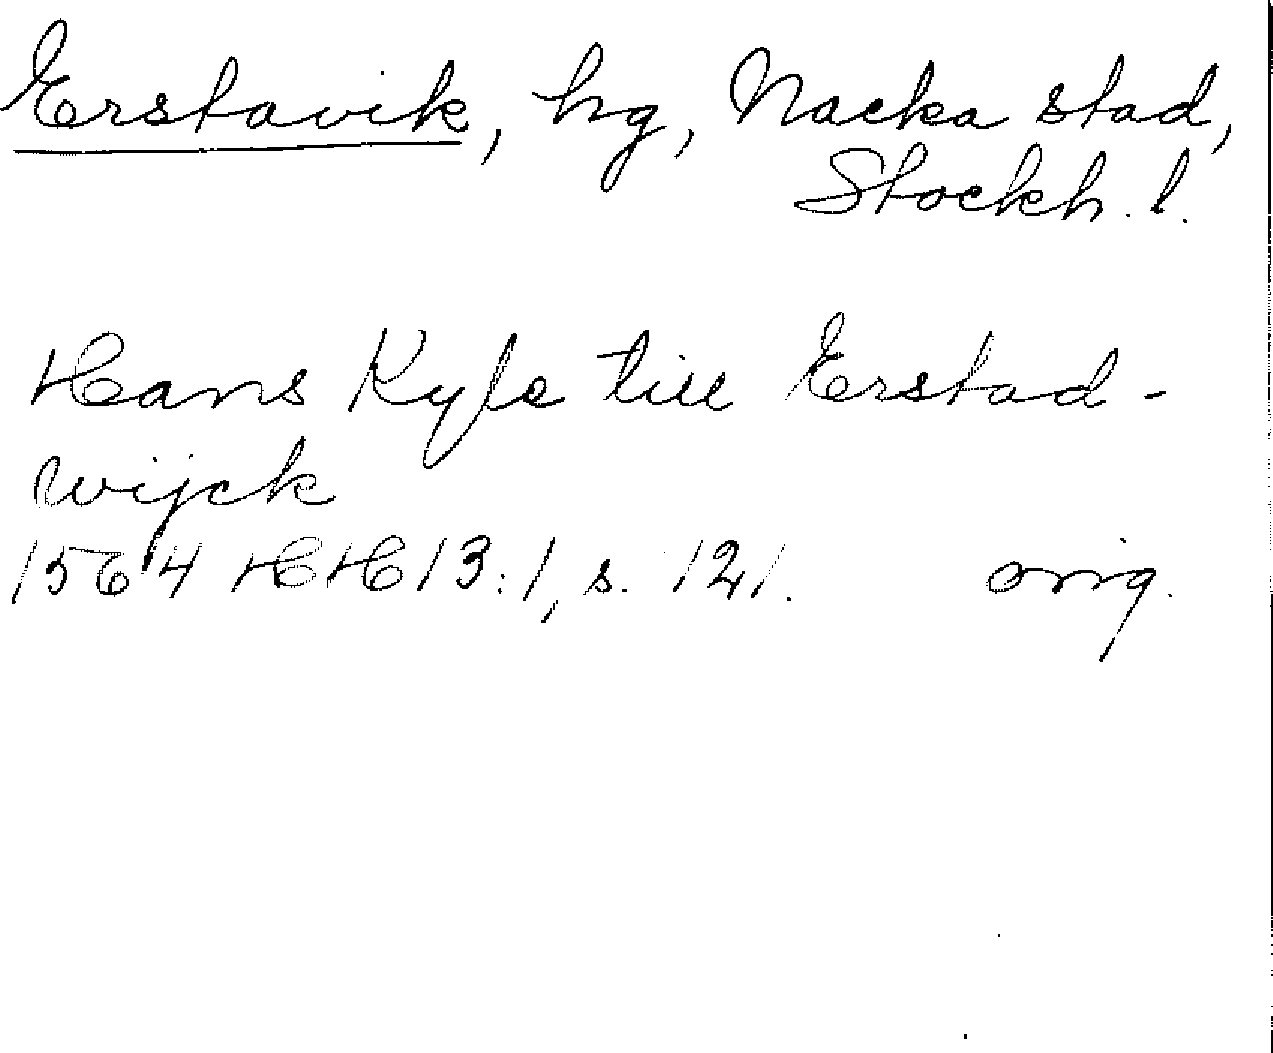 Erstavik, hg, Nacka stad,
Stockh. l.
Hans Kyle till Erstad-
wijck
1564 HH 13:1, s. 121. orig.